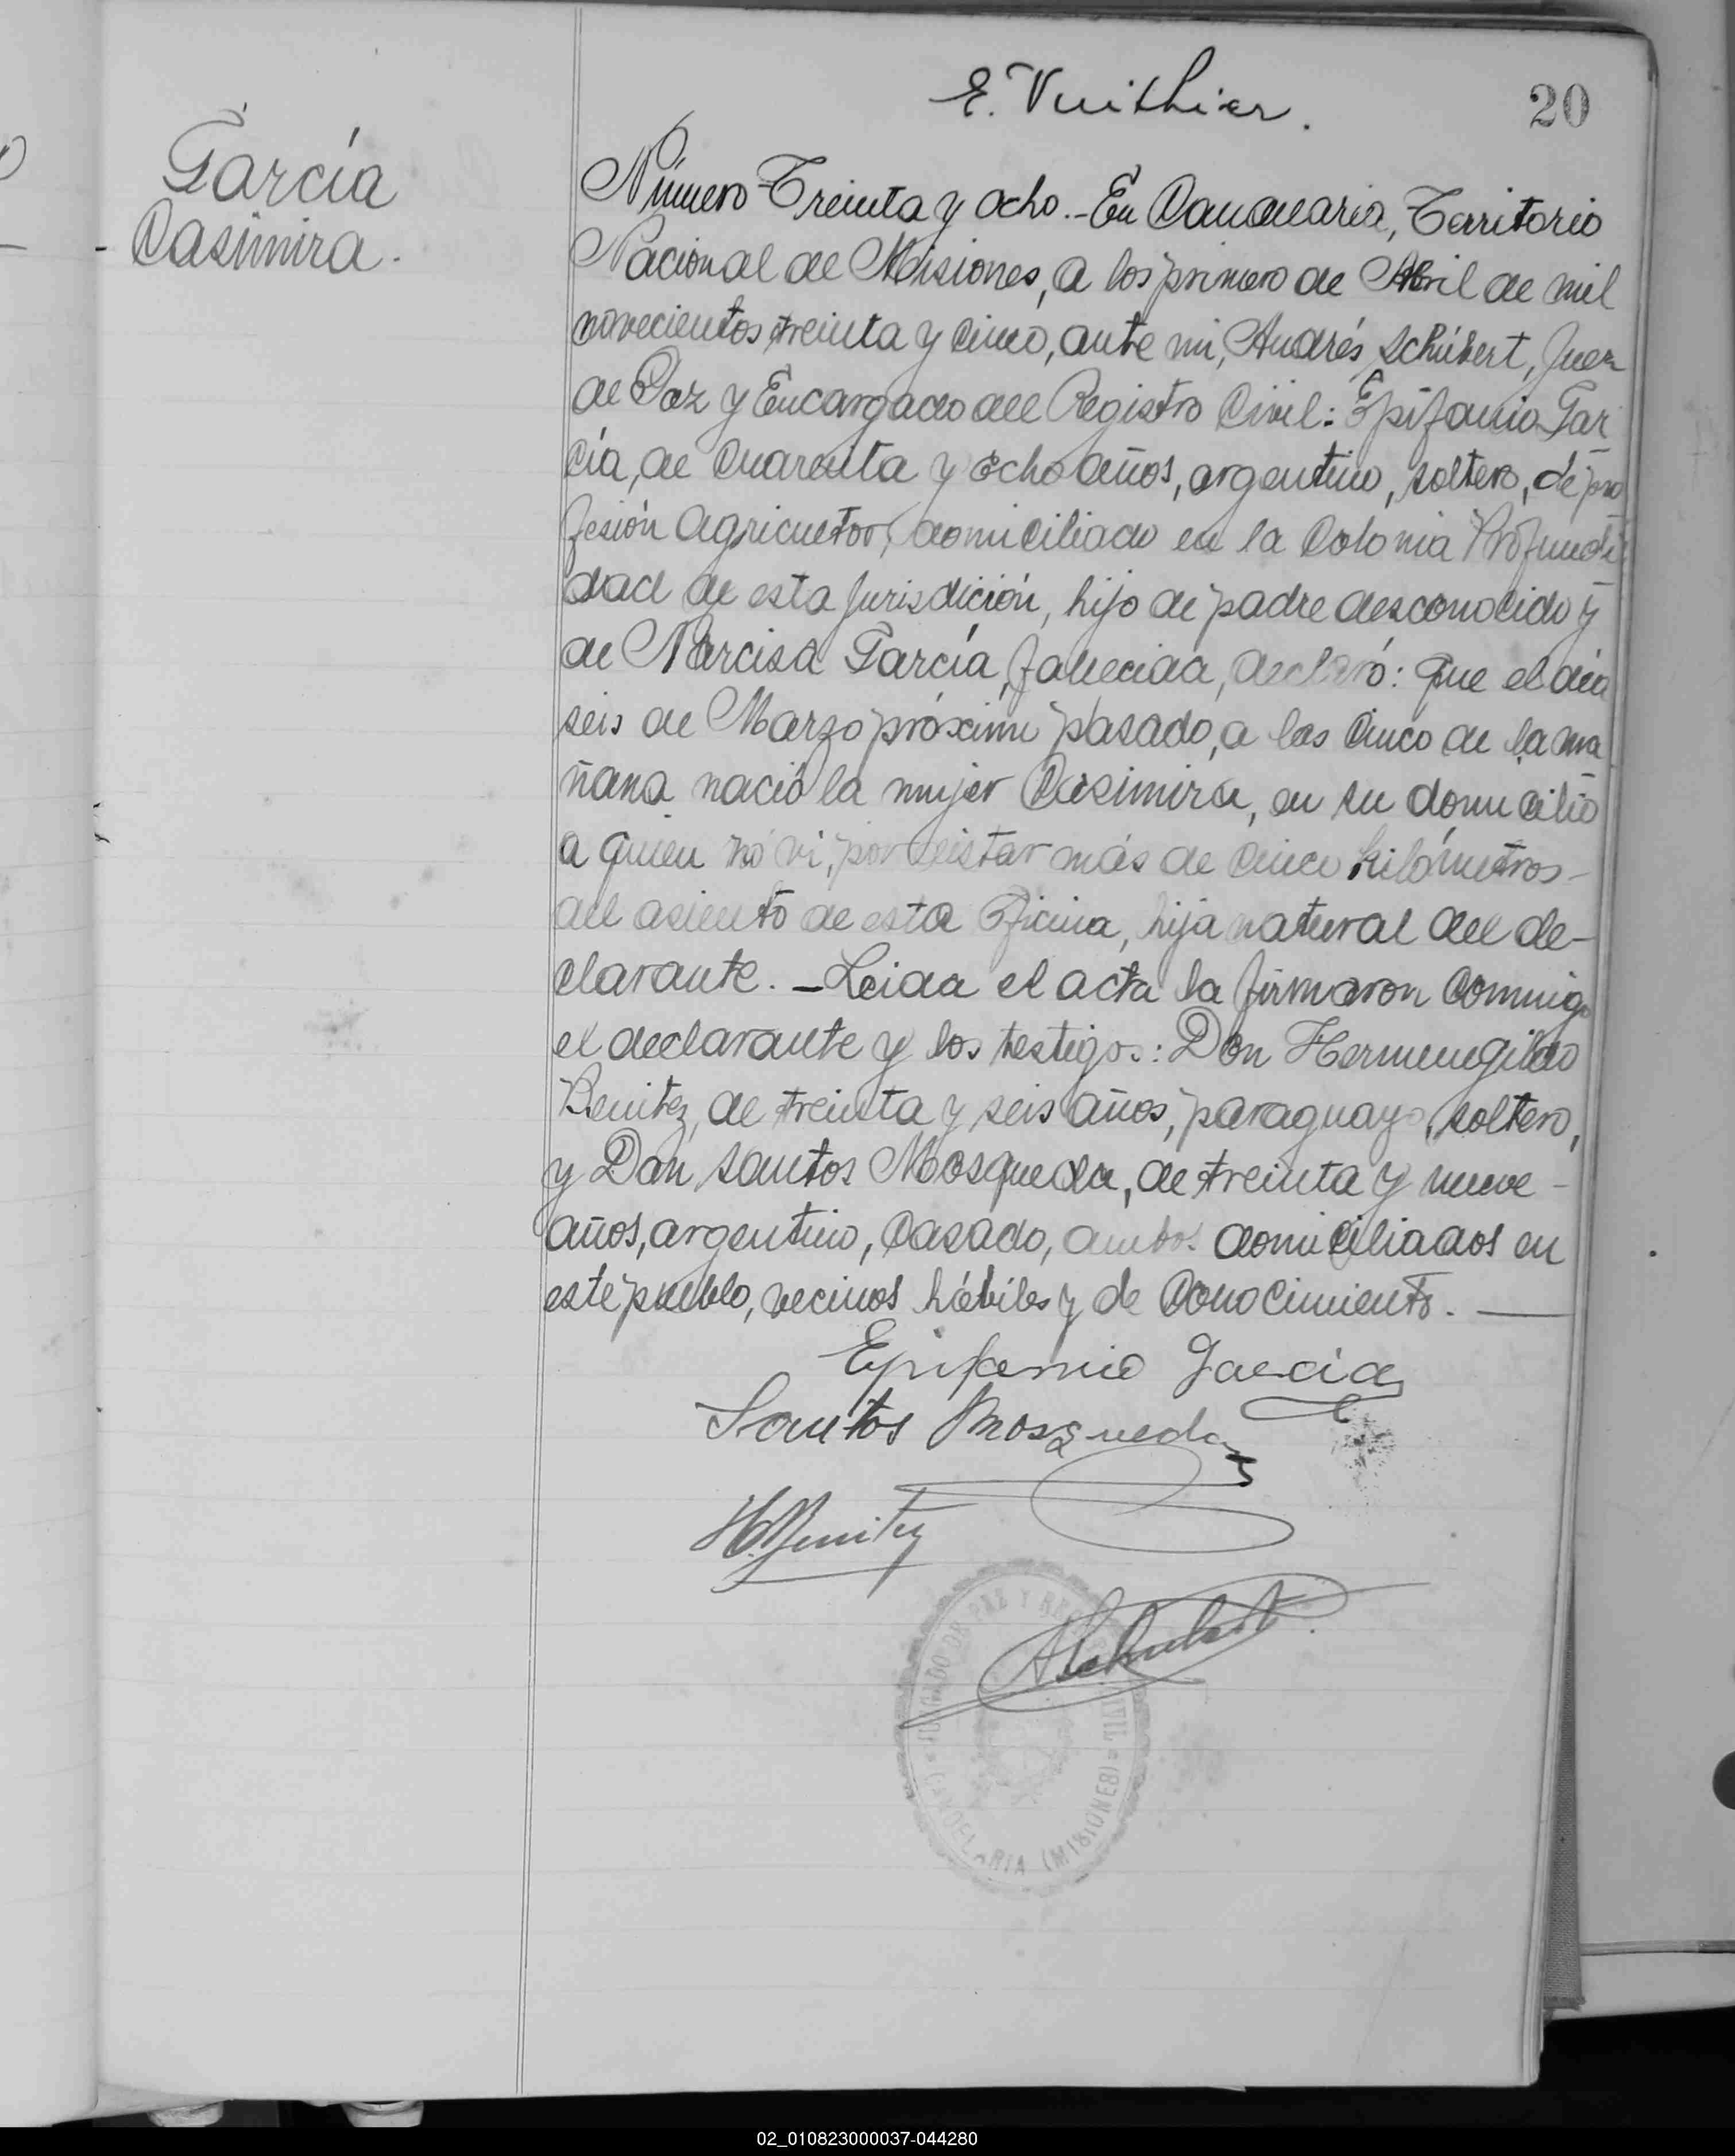 E. Vuithier.
20
García
Casimira.
Número Treinta y ocho.-En Candelaria, Territorio
Nacional de Misiones, a los primero de Abril de mil
novecientos treinta y cinco, ante mi, Andrés Schübert, Juez
de Paz y Encargado del Registro Civil: Epifanio Gar
cía, de cuarenta y ocho años, argentino, soltero, de pro
fesión agricultor, domiciliado en la Colonia Profundi
dad de esta Jurisdición, hijo de padre desconocido y
de Narcisa García, fallecida, declaró: que el día
seis de Marzo próximo pasado, a las cinco de la ma
ñana nació la mujer Casimira, en su domicilio
a quien no vi, por distar más de cinco kilómetros-
del asiento de esta Oficina, hija natural del de-
clarante.-Leida el acta la firmaron conmigo
el declarante y los testigos: Don Hermenegildo
Benitez, de treinta y seis años, paraguayo, soltero,
y Don Santos Mosqueda, de treinta y nueve-
años, argentino, casado, ambos domiciliados en
este pueblo, vecinos hábiles y de conocimiento.-
Epifanio Garcia
Santos Mosqueda
H. Benitez
ASchubert
JUZGADO DE PAZ Y REGISTRO CIVIL
CANDELARIA (MISIONES)
02_010823000037-044280